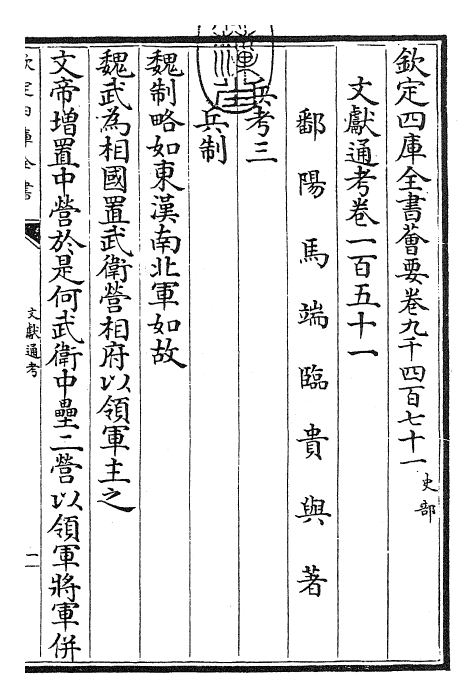 欽定四庫全書薈要卷九千四百七十一 史部
文獻通考卷一百五十一
鄱陽馬端臨貴與著
兵考三
兵制
魏制略如東漢南北軍如故
魏武為相國置武衛營相府以領軍主之
文帝增置中營於是何武衛中壘二營以領軍將軍併
欽定四庫全書
文獻通考
一